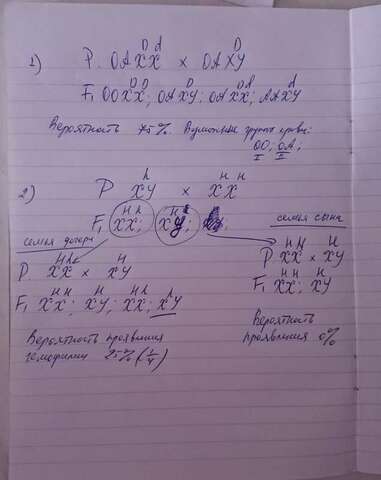 1) P. OAXᴰXᵈ × OAXᴰY
F₁ OOXᴰXᴰ; OAXᴰY; OAXᴰXᵈ; AAXᵈY
Вероятность 75%. Возможные группы крови:
OO; OA;
I II
2) P XʰY × XᴴXᴴ
F₁ XᴴXʰ; XᴴY;
семья дочери
P XᴴXʰ × XᴴY
F₁ XᴴXᴴ; XᴴY; XᴴXʰ; XʰY
Вероятность проявления
гемофилии 25% (1/4)
семья сына
P XᴴXᴴ × XᴴY
F₁ XᴴXᴴ; XᴴY
Вероятность
проявления 0%